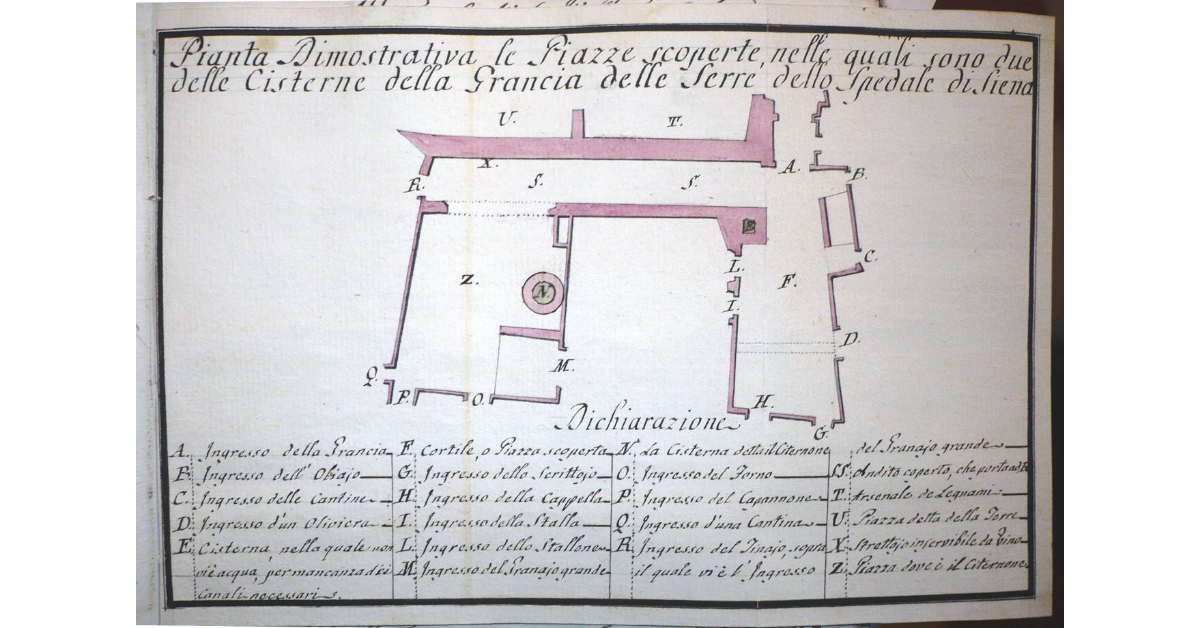 Pianta Dimostrativa le Piazze scoperte, nelle quali sono due
delle Cisterne della Grancia delle Serre dello Spedale di Siena
U. T.
X. A.
R. S. S. B.
L. C.
Z. F.
N. I.
D.
M.
Q. P. O. H.
G.
Dichiarazione
A. Ingresso della Grancia
B. Ingresso dell' Obiajo
C. Ingresso delle Cantine
D. Ingresso d'un Oliviera
E. Cisterna, nella quale non
vi è acqua, per mancanza dei
Canali necessari.
F. Cortile, o Piazza scoperta
G. Ingresso dello Scrittojo
H. Ingresso della Cappella
I. Ingresso della Stalla
L. Ingresso dello Stallone
M. Ingresso del Granajo grande
N. La Cisterna detta il Citernone
O. Ingresso del Forno
P. Ingresso del Capannone
Q. Ingresso d'una Cantina
R. Ingresso del Tinajo, sopra
il quale vi è l' Ingresso
del Granajo grande
SS. Andito coperto, che porta ad
T. Arsenale de Legnami
U. Piazza detta delle Serre
X. Strettojo inservibile da vino
Z. Piazza dove è il Citernone